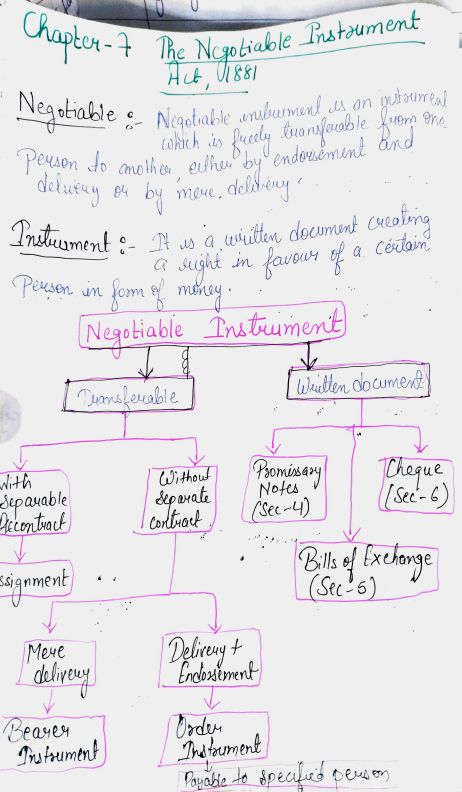 Chapter-7 The Negotiable Instrument
Act, 1881
Negotiable :- Negotiable instrument is an instrument
which is freely transferable from one
Person to another, either by endorsement and
delivery or by mere delivery.
Instrument :- It is a written document creating
a right in favour of a certain
Person in form of money.
Negotiable Instrument
Transferable
Written document
With
Separable
contract
Without
Separate
contract
Promissory
Notes
(Sec-4)
Cheque
(Sec-6)
Bills of Exchange
(Sec-5)
ssignment
Mere
delivery
Delivery +
Endorsement
Bearer
Instrument
Order
Instrument
Payable to specified person